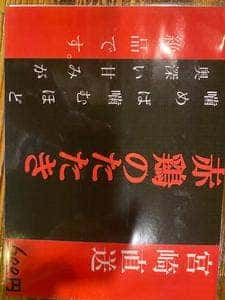 宮崎直送
赤鶏のたたき
噛めば噛むほど
奥深い甘みが
絶品です。
600円